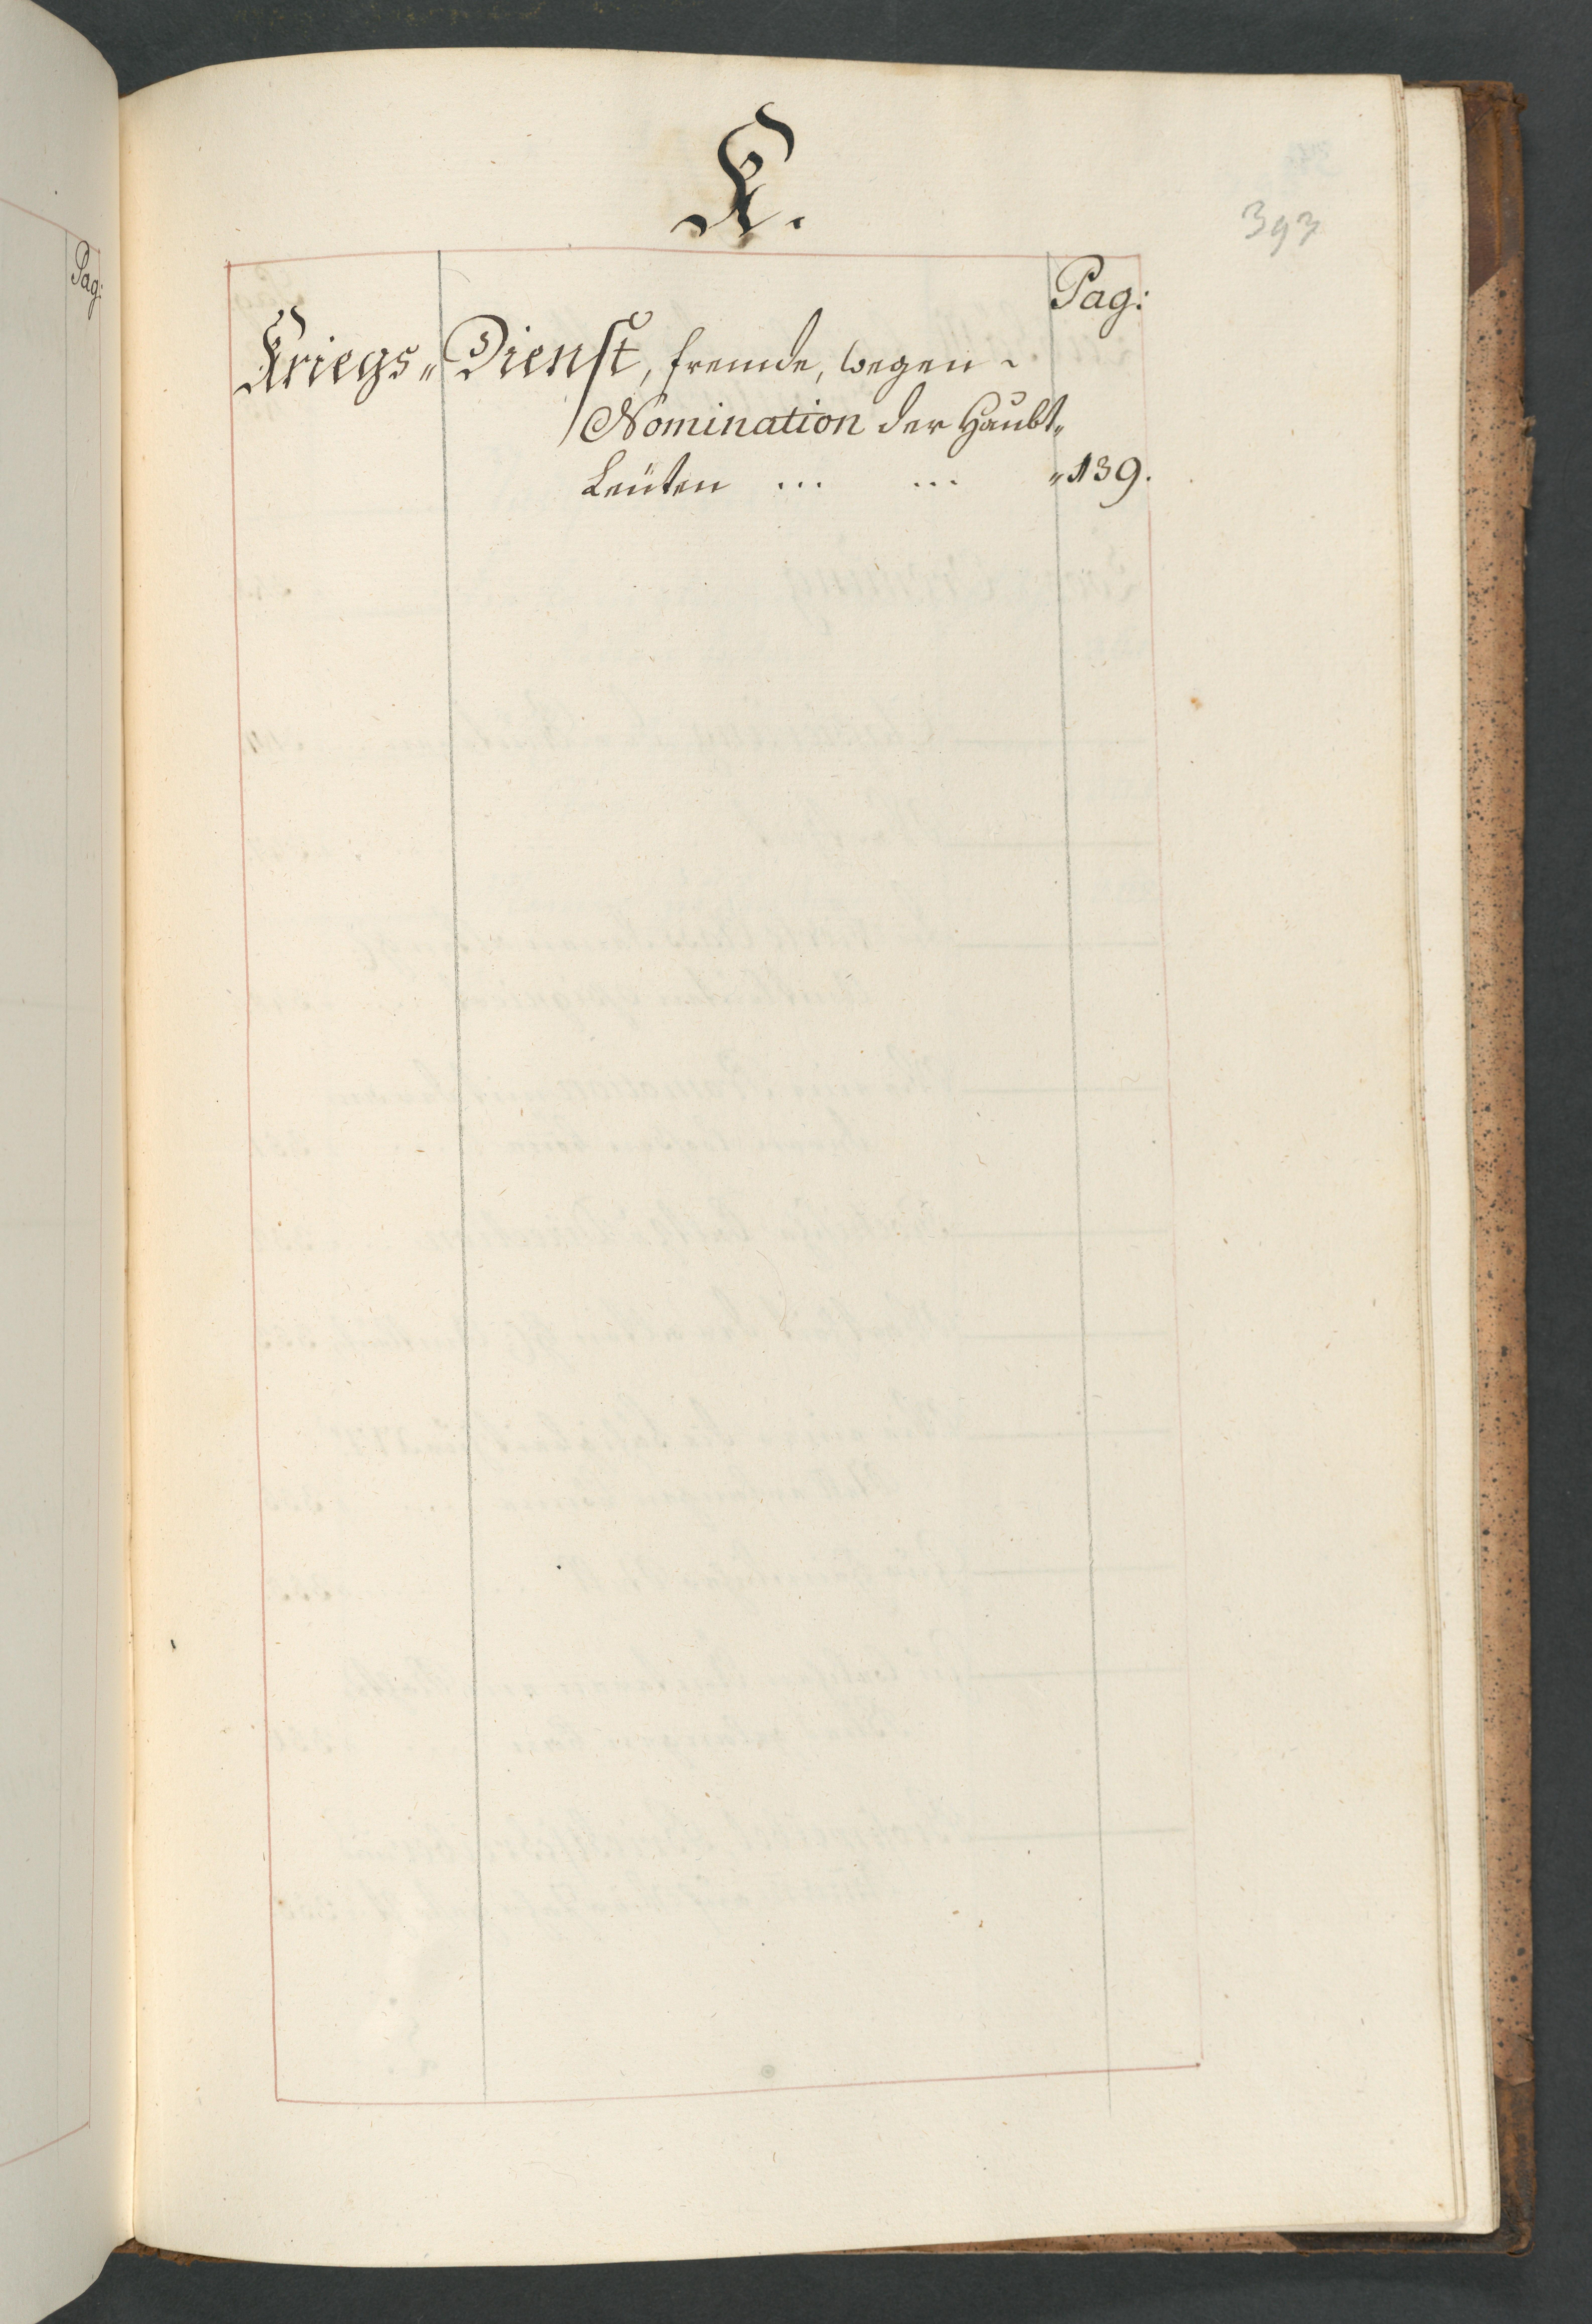 Pag:
K.
393
Pag:
Kriegs„ Dienst, fremde, wegen ~
Nomination der Haubt„
Leüten ... ... „139.